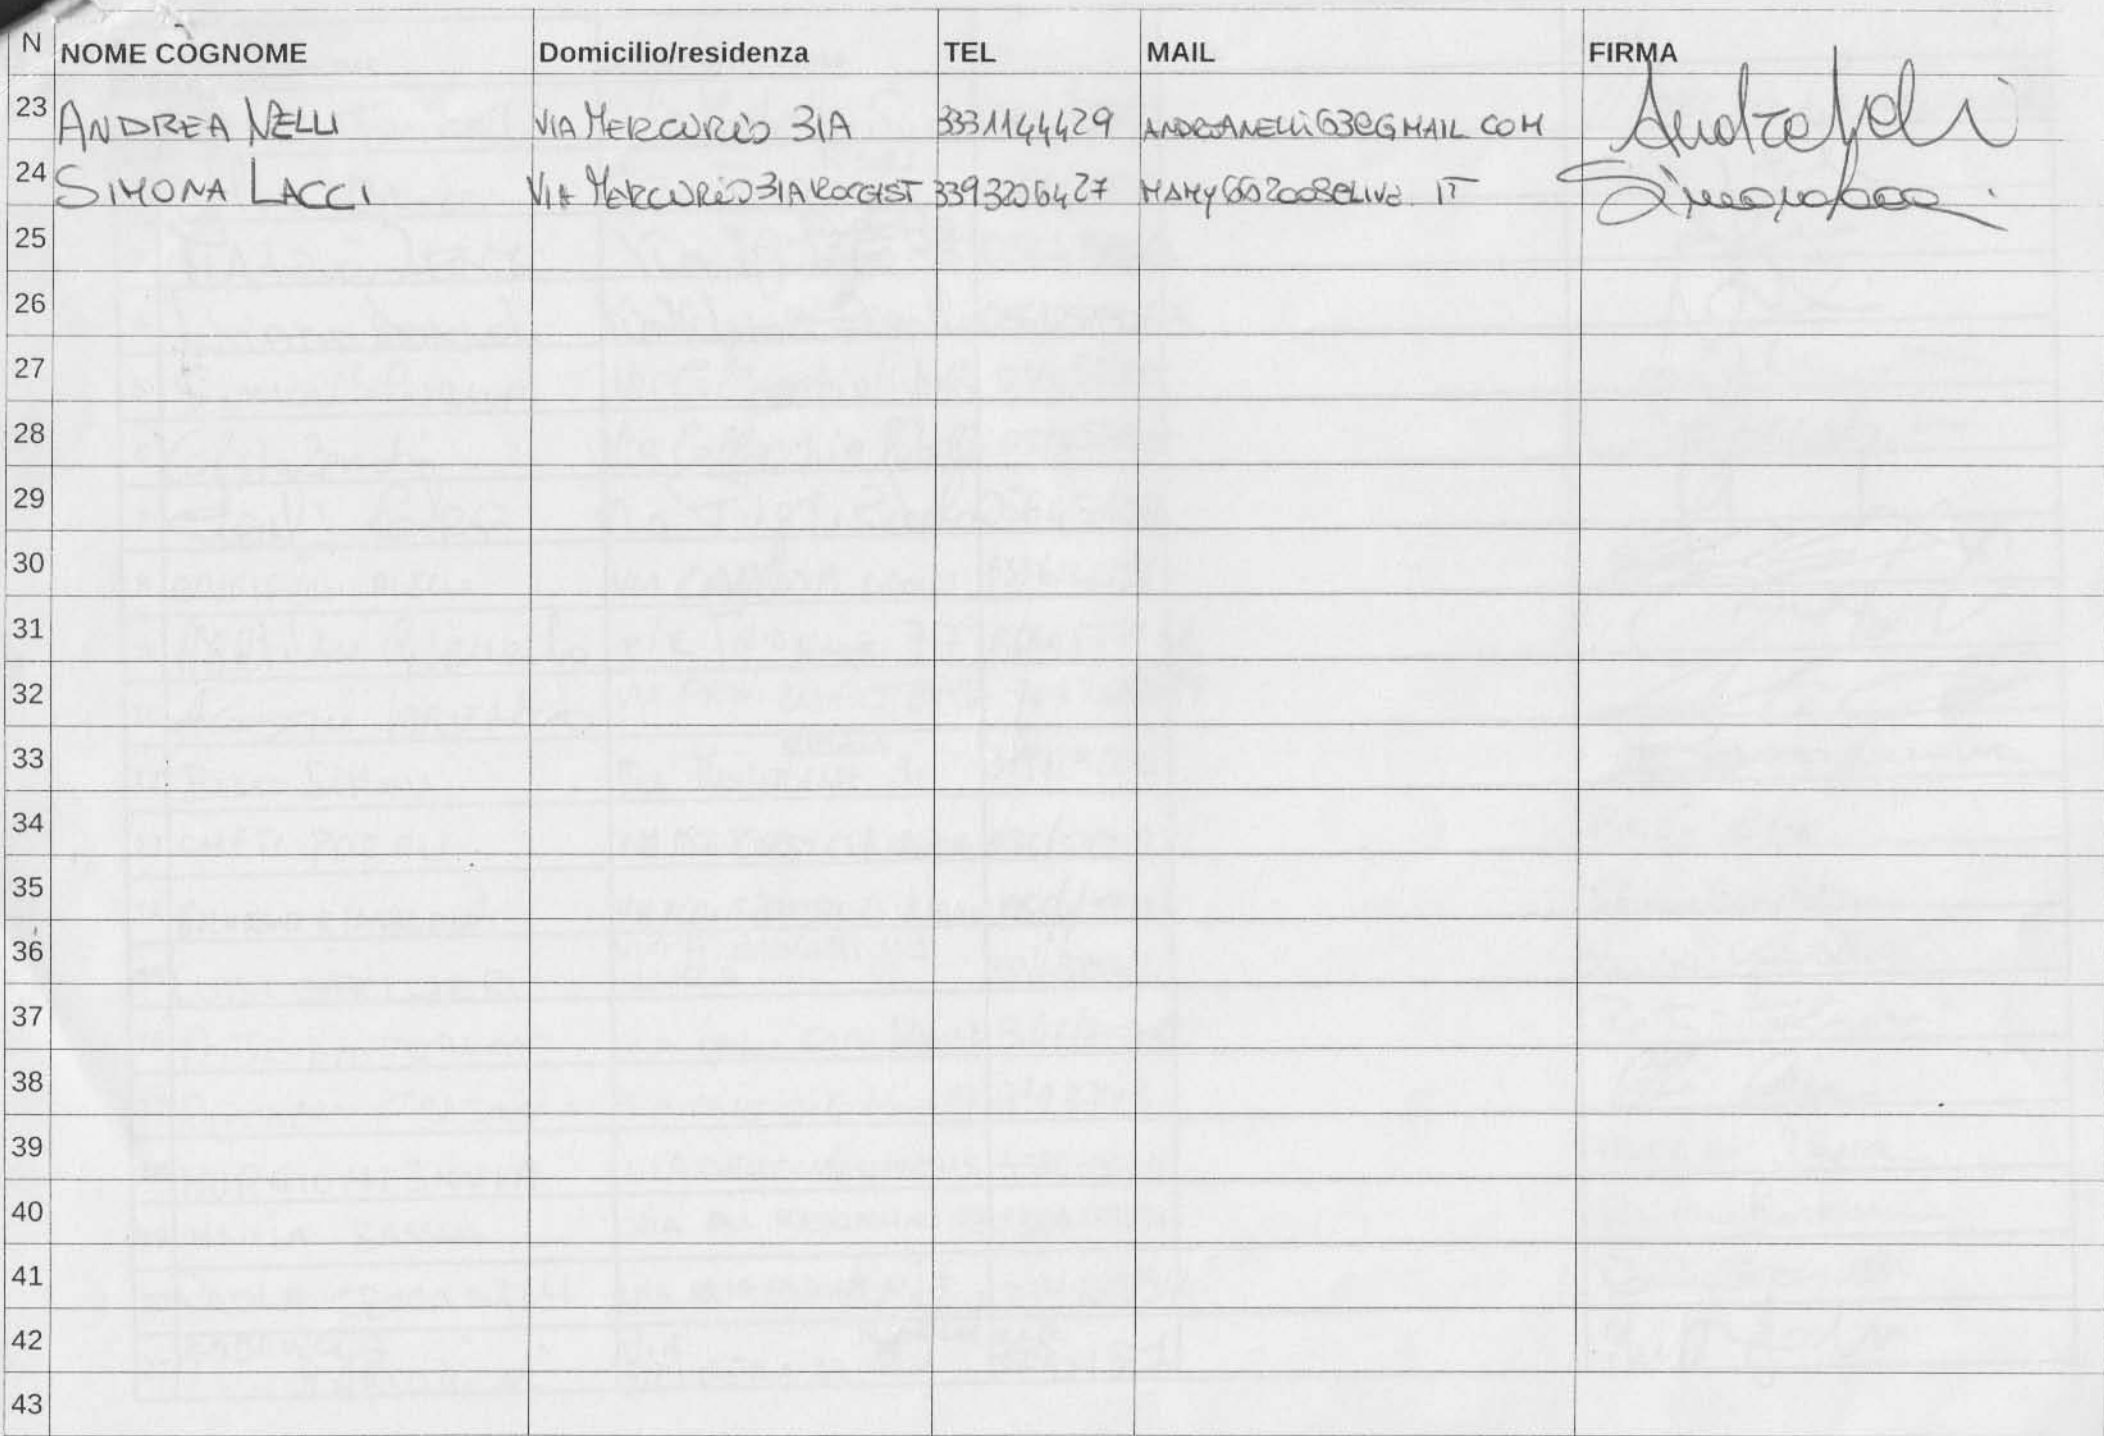 N NOME COGNOME Domicilio/residenza TEL MAIL FIRMA
23 ANDREA NELLI VIA MERCURIO 31A 3331144429 ANDREANELLI63@GMAIL COM Andrea Nelli
24 SIMONA LACCI VIA MERCURIO 31A ROCCAST 3393206427 MAMY662008@LIVE. IT Simona Lacci
25
26
27
28
29
30
31
32
33
34
35
36
37
38
39
40
41
42
43